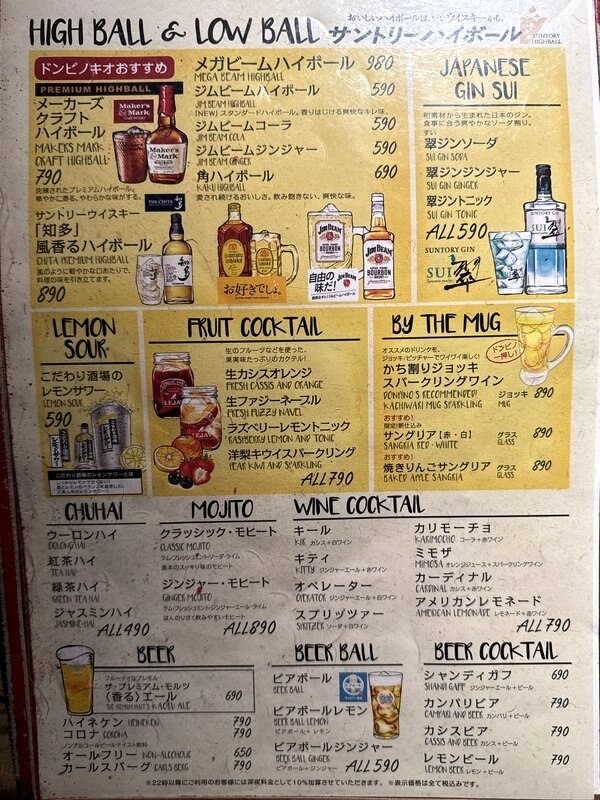 HIGH BALL & LOW BALL
サントリーハイボール
SUNTORY HIGHBALL
ドンピノキオおすすめ
PREMIUM HIGHBALL
メーカーズ
クラフト
ハイボール
MAKERS MARK
CRAFT HIGHBALL
790
洗練されたプレミアムハイボール。
華やかに香る、やわらかな味わい。
サントリーウイスキー
「知多」
風香るハイボール
CHITA PREMIUM HIGHBALL
風のように軽やかな口あたりで、
料理の味を引き立てます。
890
メガビームハイボール 980
MEGA BEAM HIGHBALL
ジムビームハイボール 590
JIM BEAM HIGHBALL
【NEW】スタンダードハイボール。香りはじける爽快なキレ味。
ジムビームコーラ 590
JIM BEAM COLA
ジムビームジンジャー 590
JIM BEAM GINGER
角ハイボール 690
KAKU HIGHBALL
愛され続けるおいしさ。飲み飽きない、爽快な味。
お好きでしょ。
自由の
味だ!
JIM BEAM
BOURBON
JAPANESE
GIN SUI
和素材から生まれた日本のジン。
食事に合う爽やかなソーダ割り。
すい
翠ジンソーダ
SUI GIN SODA
翠ジンジンジャー
SUI GIN GINGER
翠ジントニック
SUI GIN TONIC
ALL590
SUNTORY GIN
SUI 翠
LEMON
SOUR
こだわり酒場の
レモンサワー
LEMON SOUR
590
こだわり酒場のレモンサワーとは
FRUIT COCKTAIL
生のフルーツなどを使った、
果実味たっぷりのカクテル!
生カシスオレンジ
FRESH CASSIS AND ORANGE
生ファジーネーブル
FRESH FUZZY NAVEL
ラズベリーレモントニック
RASPBERRY LEMON AND TONIC
洋梨キウイスパークリング
PEAR KIWI AND SPARKLING
ALL790
BY THE MUG
オススメのドリンクを、
ジョッキ/ピッチャーでワイワイ楽しく!
ドンピノ
一押し!
かち割りジョッキ
スパークリングワイン
DONPINO'S RECOMMENDED!
KACHIWARI MUG SPARKLING
ジョッキ 890
MUG
おすすめ!
限定!朝仕込み
サングリア【赤・白】
SANGRIA RED・WHITE
グラス 890
GLASS
おすすめ!
焼きりんごサングリア
BAKED APPLE SANGRIA
グラス 890
GLASS
CHUHAI
ウーロンハイ
OOLONG HAI
紅茶ハイ
TEA HAI
緑茶ハイ
GREEN TEA HAI
ジャスミンハイ
JASMINE-HAI
ALL490
MOJITO
クラッシック・モヒート
CLASSIC MOJITO
ラム・フレッシュミント・ソーダ・ライム
基本のスッキリ味のモヒート
ジンジャー・モヒート
GINGER MOJITO
ラム・フレッシュミント・ジンジャーエール・ライム
ほんのり甘く飲みやすいモヒート
ALL890
WINE COCKTAIL
キール
KIR カシス+白ワイン
キティ
KITTY ジンジャーエール+赤ワイン
オペレーター
OPERATOR ジンジャーエール+白ワイン
スプリッツァー
SPRITZER ソーダ+白ワイン
カリモーチョ
KARIMOCHO コーラ+赤ワイン
ミモザ
MIMOSA オレンジジュース+スパークリングワイン
カーディナル
CARDINAL カシス+赤ワイン
アメリカンレモネード
AMERICAN LEMONADE レモネード+赤ワイン
ALL790
BEER
フルーティなプレモル
ザ・プレミアム・モルツ
〈香る〉エール 690
THE PREMIUM MALT'S KAORU ALE
ハイネケン HEINEKEN 790
コロナ CORONA 790
ノンアルコールビールテイスト飲料
オールフリー NON-ALCOHOLIC 650
カールスバーグ CARLSBERG 790
BEER BALL
ビアボール
BEER BALL
ビアボールレモン
BEER BALL LEMON
ビアボール+レモン
ビアボールジンジャー
BEER BALL GINGER
ビアボール+ジンジャー
ALL590
BEER COCKTAIL
シャンディガフ 690
SHANDY GAFF ジンジャーエール+ビール
カンパリビア 790
CAMPARI AND BEER カンパリ+ビール
カシスビア 790
CASSIS AND BEER カシス+ビール
レモンビール 790
LEMON BEER レモン+ビール
※22時以降にご利用のお客様には深夜料金として10%加算させていただきます。 ※表示価格は全て税込です。